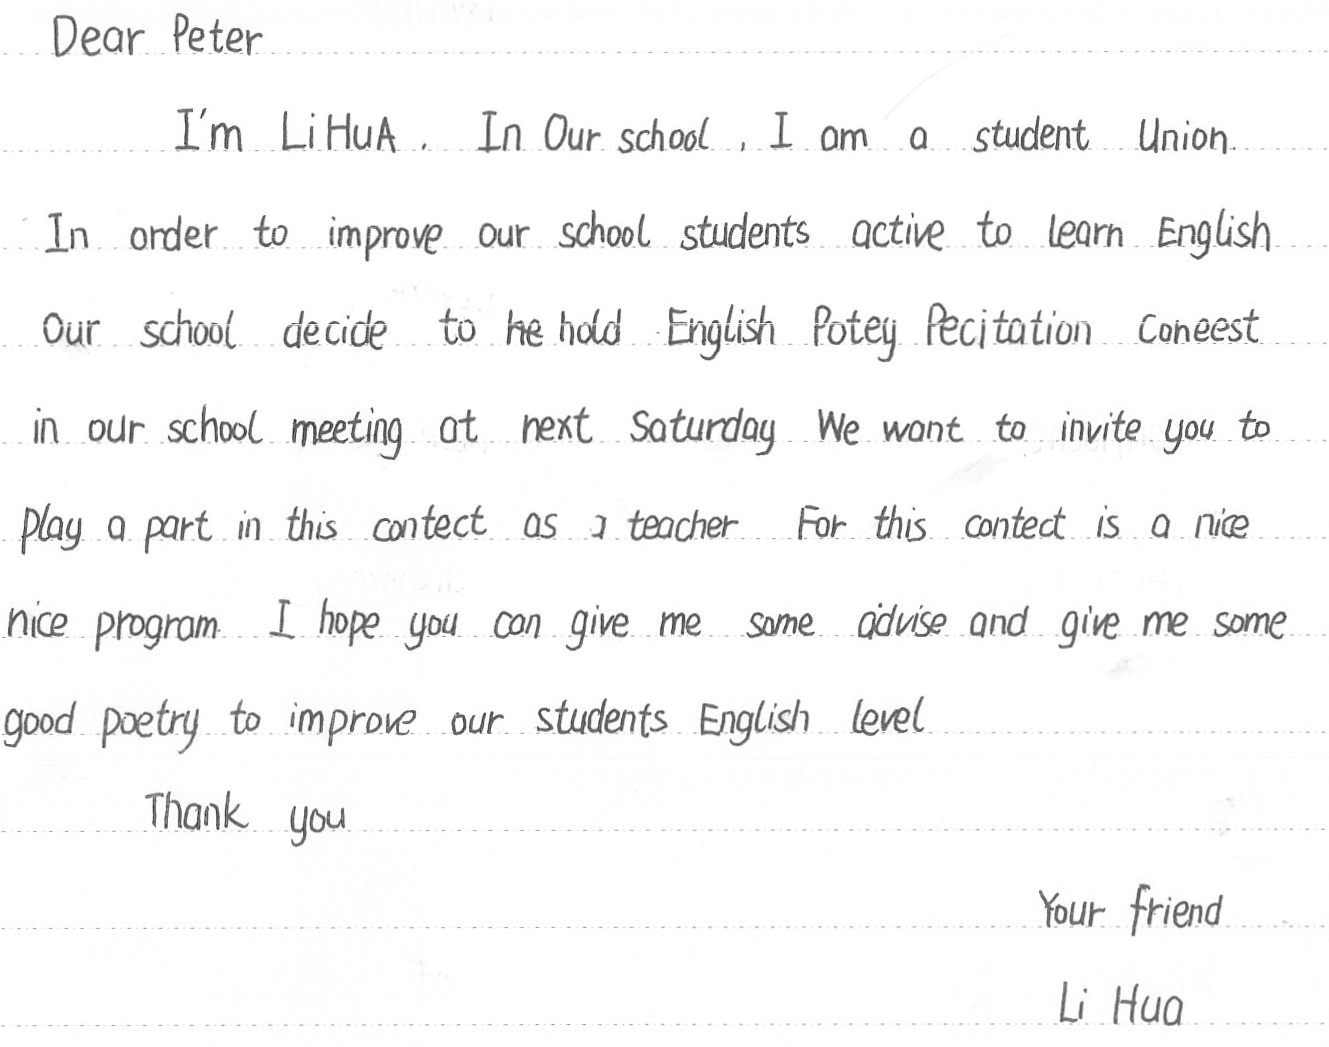 Dear Peter
I'm LiHuA. In Our school, I am a student Union.
In order to improve our school students active to learn English
Our school decide to he hold English Potey Pecitation Coneest
in our school meeting at next Saturday We want to invite you to
play a part in this contect as a teacher For this contect is a nice
nice program. I hope you can give me some advise and give me some
good poetry to improve our students English level
Thank you
Your friend
Li Hua